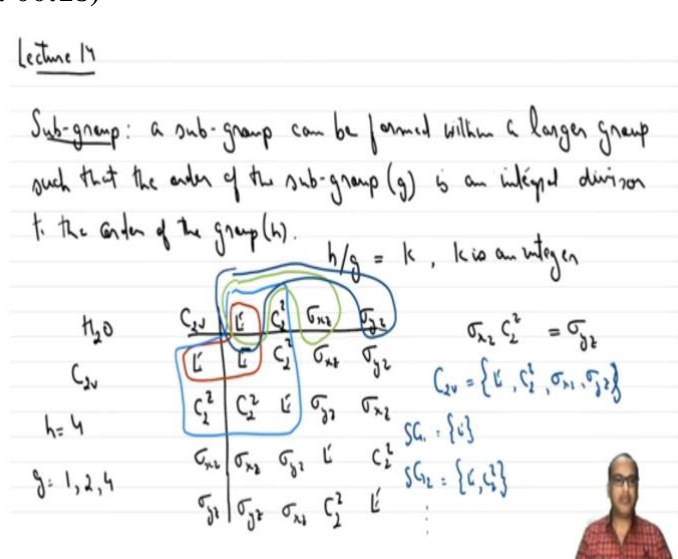 Lecture 14
Sub-group: a sub-group can be formed within a larger group
such that the order of the sub-group (g) is an integral divisor
to the order of the group (h).
h/g = k , k is an integer
H₂O
C₂ᵥ
h=4
g: 1,2,4
C₂ᵥ | E C₂ᶻ σₓz σyz
E | E C₂ᶻ σₓz σyz
C₂ᶻ | C₂ᶻ E σyz σₓz
σₓz | σₓz σyz E C₂ᶻ
σyz | σyz σₓz C₂ᶻ E
σₓz C₂ᶻ = σyz
C₂ᵥ = {E, C₂ᶻ, σₓz, σyz}
SG₁ = {E}
SG₂ = {E, C₂ᶻ}
⋮